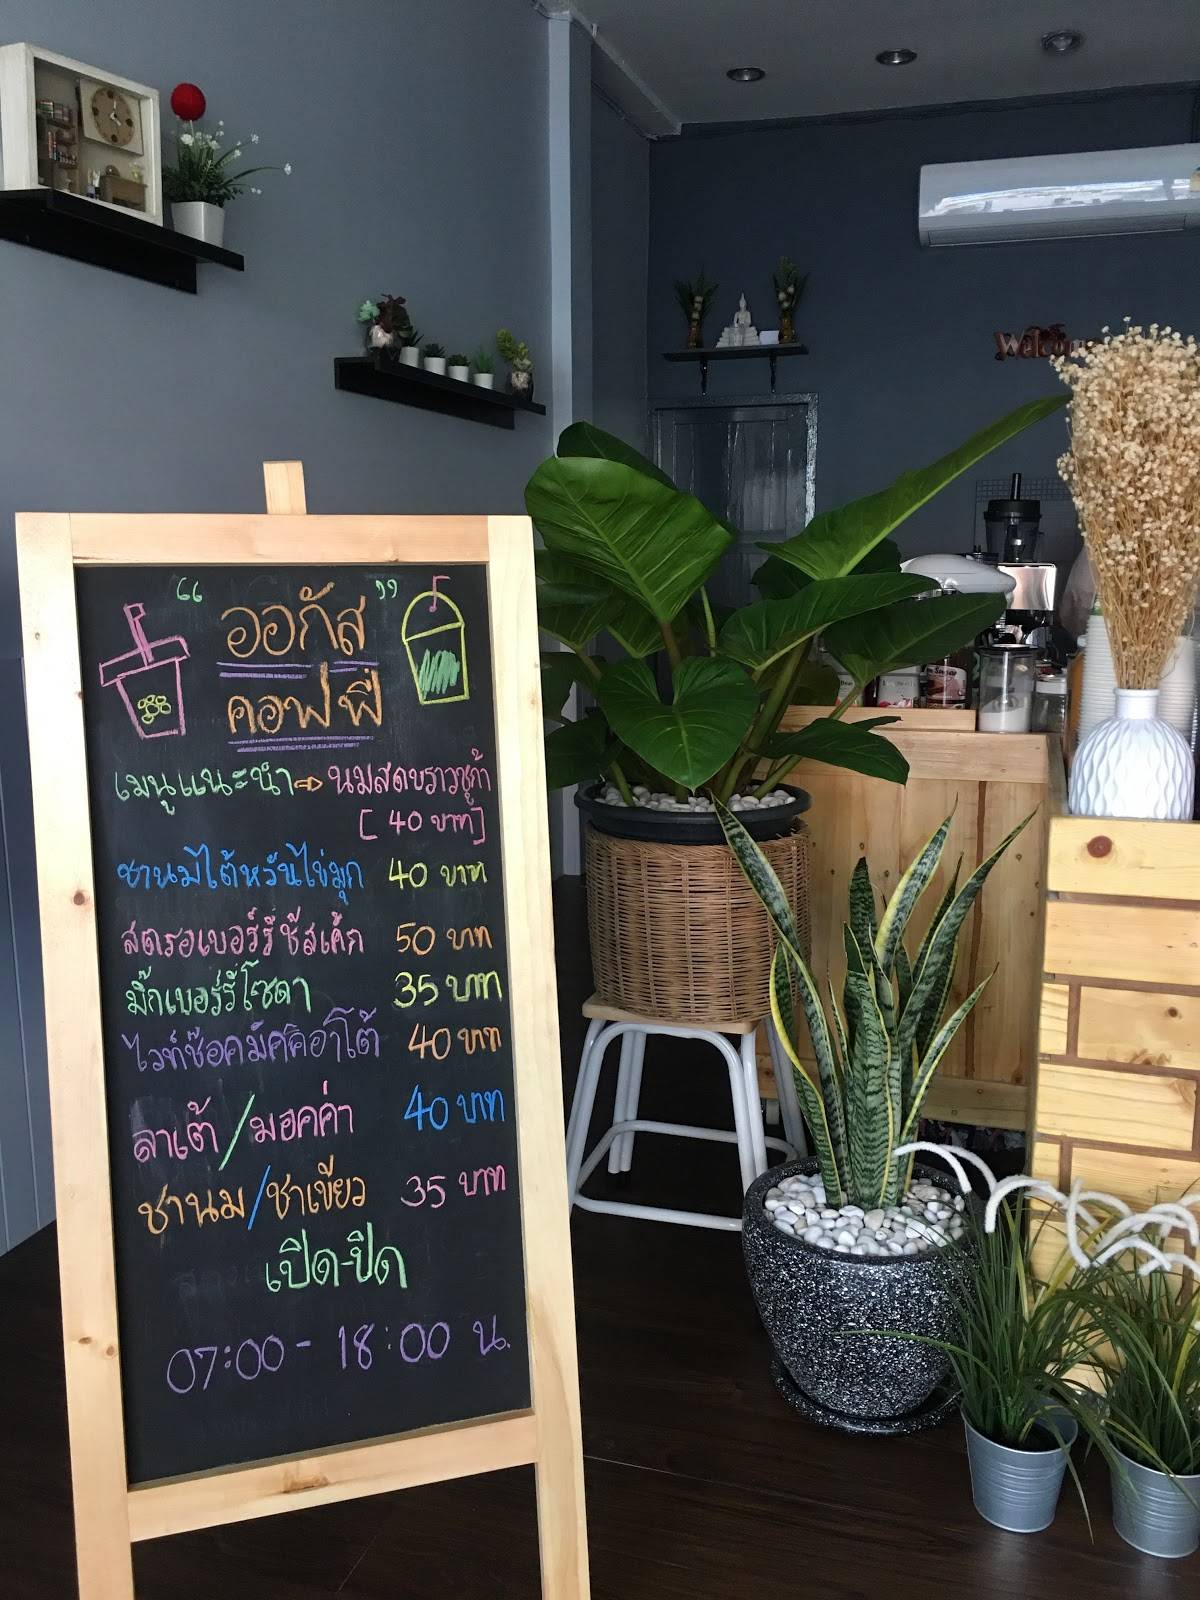 “ออกัส”
คอฟฟี่
เมนูแนะนำ⇨ นมสดบราวชูก้า
[ 40 บาท]
ชานมไต้หวันไข่มุก 40 บาท
สตรอเบอร์รี่ชีสเค้ก 50 บาท
มิ๊กเบอร์รี่โซดา 35 บาท
ไวท์ช๊อคมัคคอาโต้ 40 บาท
ลาเต้/มอคค่า 40 บาท
ชานม/ชาเขียว 35 บาท
เปิด-ปิด
07:00 - 18:00 น.
Welcome